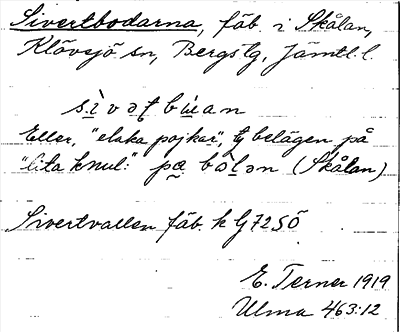 Sivertbodarna, fäb. i Skålan,
Klövsjö sn, Bergs tg, Jämtl. l.
Eller, "elaka pojkar", ty belägen på
"lita knul:" (Skålan)
Sivertvallen fäb. k G72SÖ
E. Terner 1919
Ulma 463:12